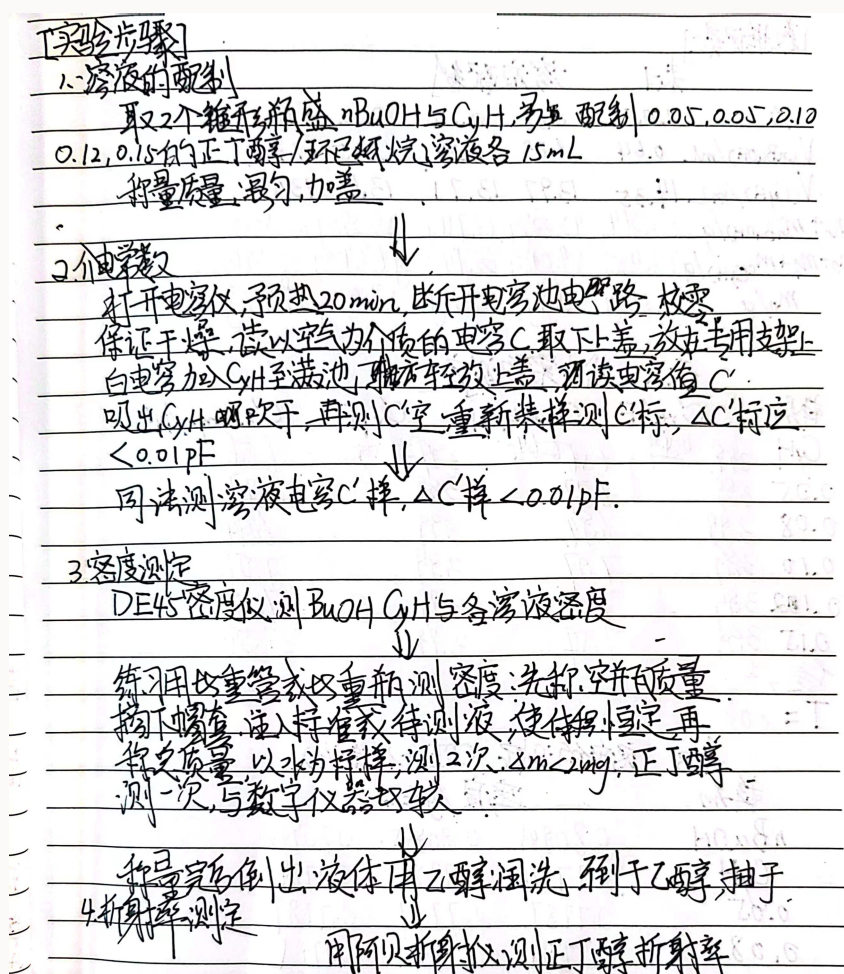 [实验步骤]
1.溶液的配制
取2个锥形瓶盛nBuOH与CyH, 配制0.05,0.05,0.10
0.12,0.15的正丁醇/环己烷溶液各15mL
称量质量,混匀,加盖
⇓
2.介电常数
打开电容仪,予热20min,断开电容池电路 校零
保证干燥,读以空气为介质的电容C,取下上盖,放在专用支架上
向电容加入CyH至满池,轻放上盖,测读电容值C'
吸出CyH 吹干,再测C'空,重新装样测C'标,ΔC'标应
<0.01pF
⇓
同法测溶液电容C'样,ΔC'样<0.01pF.
3.密度测定
DE45密度仪测BuOH CyH与各溶液密度
⇓
练习用比重管或比重瓶测密度:先称空瓶质量
摘下帽套,注入标准或待测液,使体积恒定,再
称定质量,以水为标样,测2次.Δm<2mg,正丁醇
测一次,与数字仪器比较
⇓
称量完后倒出液体用乙醇润洗,倒干乙醇,抽干
4.折射率测定
⇓
用阿贝折射仪测正丁醇折射率